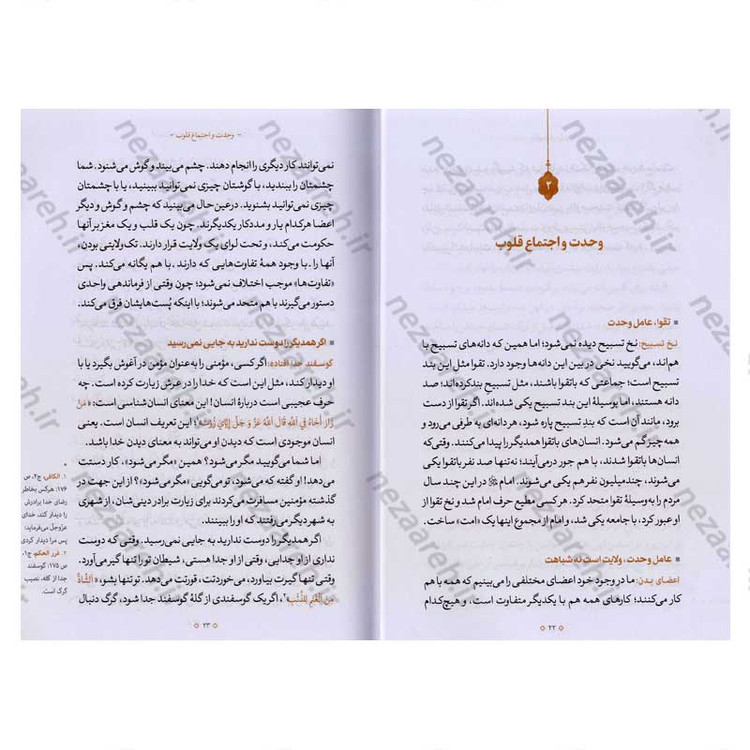 ۲
وحدت و اجتماع قلوب
تقوا، عامل وحدت
نخ تسبیح: نخ تسبیح دیده نمی‌شود؛ اما همین که دانه‌های تسبیح با
هم‌اند، می‌گویید نخی در بین این دانه‌ها وجود دارد. تقوا مثل این بند
تسبیح است؛ جماعتی که باتقوا باشند، مثل تسبیح بندکرده‌اند؛ صد
دانه هستند، اما بوسیلهٔ این بند تسبیح یکی شده‌اند. اگر تقوا از دست
برود، مانند آن است که بندِ تسبیح پاره شود، هر دانه‌ای به طرفی می‌رود و
همه‌چیز گم می‌شود. انسان‌های باتقوا همدیگر را پیدا می‌کنند. وقتی‌که
انسان‌ها باتقوا شدند، با هم جور درمی‌آیند؛ نه‌تنها صد نفر باتقوا یکی
می‌شوند، چندمیلیون نفر هم یکی می‌شوند. امام در این چند سال
مردم را به‌وسیلهٔ تقوا متحد کرد. هرکسی مطیع امام شد و نخ تقوا از
او عبور کرد، با جامعه یکی شد، و امام از مجموع اینها یک «امت» ساخت.
عامل وحدت، ولایت است نه شباهت
اعضای بدن: ما در وجود خود اعضای مختلفی را می‌بینیم که همه با هم
کار می‌کنند؛ کارهای همه هم با یکدیگر متفاوت است، و هیچ‌کدام
۲۲
- وحدت و اجتماع قلوب -
نمی‌توانند کار دیگری را انجام دهند. چشم می‌بیند و گوش می‌شنود. شما
چشمتان را ببندید، با گوشتان چیزی نمی‌توانید ببینید، یا با چشمتان
چیزی نمی‌توانید بشنوید. درعین‌حال می‌بینید که چشم و گوش و دیگر
اعضا هرکدام یار و مددکار یکدیگرند. چون یک قلب و یک مغز بر آنها
حکومت می‌کند، و تحت لوای یک ولایت قرار دارند. تک‌ولایتی بودن،
آنها را ـ با وجود همهٔ تفاوت‌هایی که دارند ـ با هم یگانه می‌کند. پس
«تفاوت‌ها» موجب اختلاف نمی‌شود؛ چون وقتی از فرماندهی واحدی
دستور می‌گیرند با هم متحد می‌شوند؛ با اینکه پُست‌هایشان فرق می‌کند.
اگر همدیگر را دوست ندارید به جایی نمی‌رسید
گوسفند جدا افتاده: اگر کسی، مؤمنی را به‌عنوان مؤمن در آغوش بگیرد یا با
او دیدار کند، مثل این است که خدا را در عرش زیارت کرده است. چه
حرف عجیبی است دربارهٔ انسان! این معنای انسان‌شناسی است: «مَن
زارَ أخاهُ فِي اللهِ قالَ اللهُ عَزَّ وَ جَلَّ إيّايَ زُرتَ»¹؛ این تعریف انسان است. یعنی
انسان موجودی است که دیدن او می‌تواند به معنای دیدن خدا باشد.
اما شما می‌گویید مگر می‌شود؟ همین «مگر می‌شود»، کار دستت
می‌دهد! او گفته که می‌شود، تو می‌گویی «مگر می‌شود؟» از این جهت در
گذشته مؤمنین مسافرت می‌کردند و برای زیارت برادر دینی‌شان، از شهری
به شهر دیگر می‌رفتند که او را ببینند.
اگر همدیگر را دوست ندارید به جایی نمی‌رسید. وقتی که دوست
نداری از او جدایی، وقتی از او جدا هستی، شیطان تو را تنها گیر می‌آورد.
وقتی تنها گیرت بیاورد، می‌خوردتت، قورتت می‌دهد. تو تنها بشو، «الشّاذُّ
مِنَ الغَنَمِ لِلذِّئبِ»²، اگر یک گوسفندی از گلهٔ گوسفند جدا شود، گرگ دنبال
۱. الکافی، ج۲، ص
۱۷۶: هرکس بخاطر
رضای خدا برادرش
را دیدار کند، خدای
عزوجل می‌فرماید:
مرا دیدار کردی
۲. غرر الحکم، ج۱،
ص ۱۷۵: گوسفند
جدا از گله، نصیب
گرگ است.
۲۳
nezaareh.ir